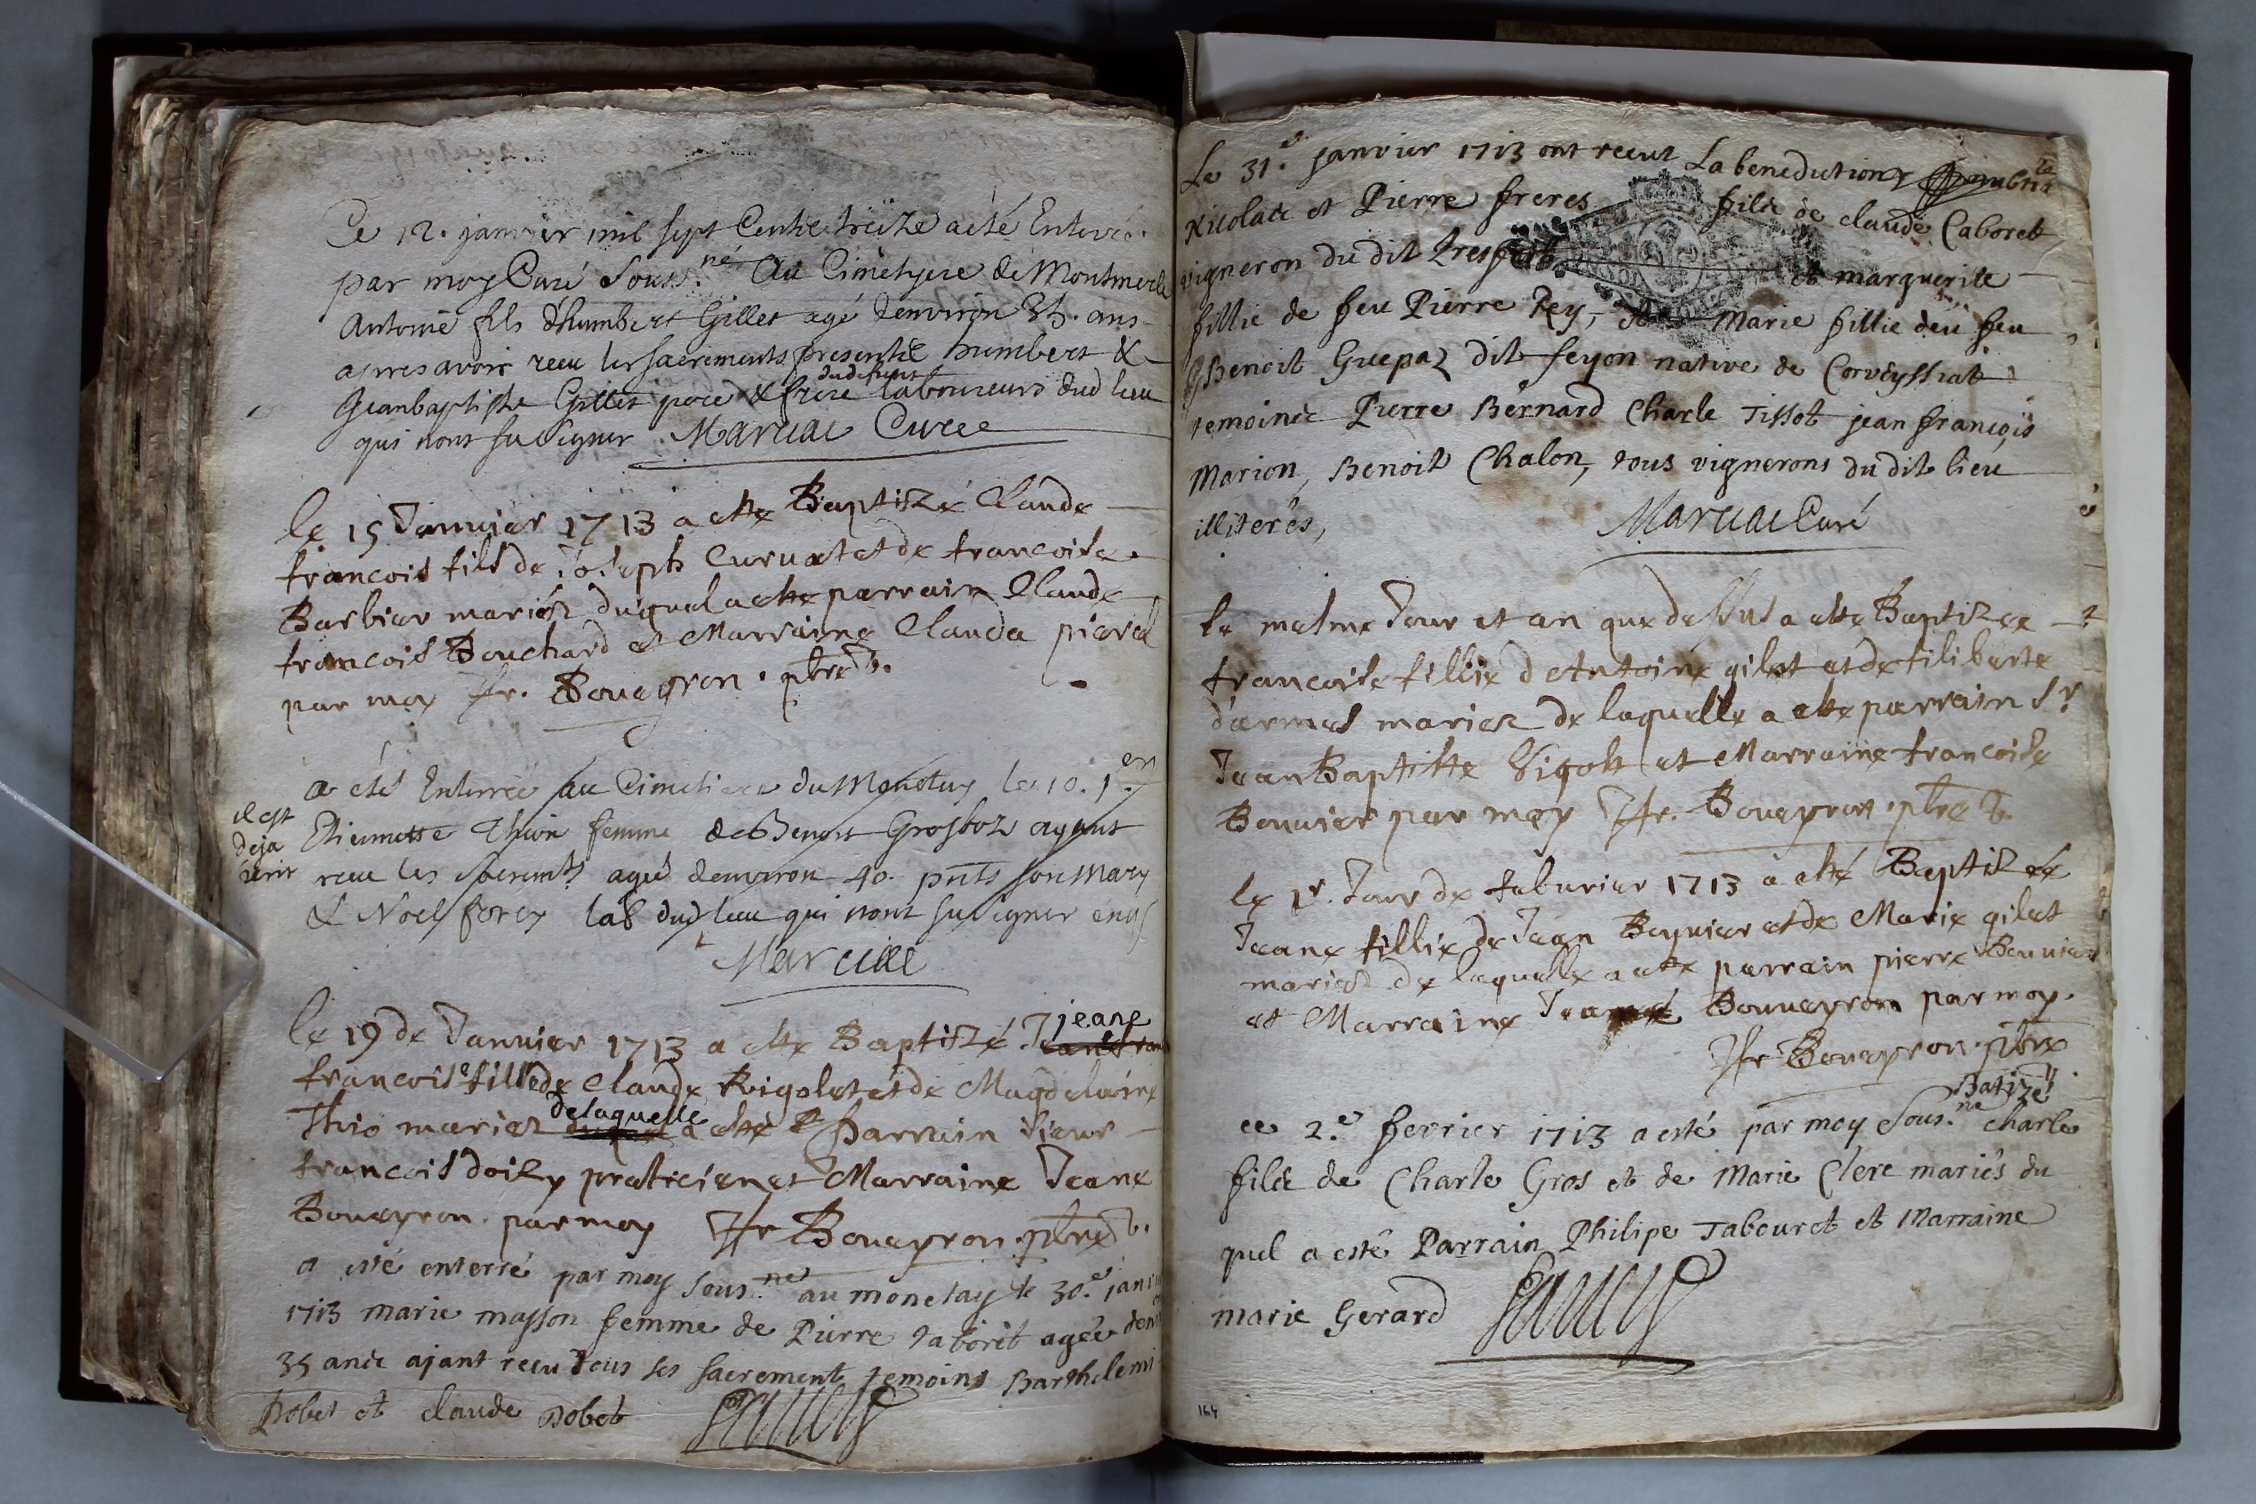 Ce 12. janvier mil sept Cents treize a eté Enterré
par moy Curé Souss.né Au Cimetyere de Montmerle
Antoine fils d'humbert Gillet agé denviron 35. ans
apres avoir receu les sacrements presentse humbert &
Jeanbaptiste Gillet pere & frere dudefunt laboureurs dud lieu
qui nont su signer. Maruae Curee
le 15 Janvier 1713 a este Baptizé Claude
francois fils de Joseph Curvat et de francoise
Barbier mariéz duquel a este parrain Claude
francois Bouchard et Marraine Clauda pierel
par moy Fr. Boueyron. pbre v.
a eté Enterrée au Cimetiere du Monetay le 10. 1.er
il est
deja
ecrit
Etiennette Thion femme de Benoit Grosboz ayant
receu les sacremts ageé denviron 40. pnts son Mary
& Noel forey lab dud lieu qui nont su signer
Maruae
le 19 de Janvier 1713 a este Baptizé jeane
francoise fille de Claude Rigolet et de Magdelaine
Thio mariez delaquelle a esté parrain sieur
francois doily praticien et Marraine Jeane
Boueyron. par moy Fr Boueyron. pbre v.
a esté enterré par moy sous.né au monetay le 30.e janv
1713 marie masson femme de Pierre taboret agée denv
35 ance ajant recu tous ses sacrement temoins Barthelemi
Bobet et claude Bobet
Le 31.e janvier 1713 ont recut La benediction
Nicolate et Pierre freres filse de claude Caboret
vigneron du dit Tresfort et marguerite
fillie de feu Pierre Rey, Marie fillie deu feu
Benoit Guepaz dit feyon native de Corveyssiat
temoince Pierre Bernard Charle Tissot jean françois
Marion, Benoit Chalon, tous vignerons du dit lieu
illiterés, Maruae Curé
le mesme Jour et an que dessus a este Baptizée
francoise fillie d'Antoine gilet et de filiberte
darmes mariez de laquelle a este parrain sr
Jean Baptiste Vigolt et Marraine francoise
Bouvier par moy Fr. Boueyron. pbre v.
le 1r. Jour de feburier 1713 a esté Baptizée
Jeane fillie de Jean Bouvier et de Marie gilet
mariez de laquelle a este parrain pierre Bouvier
et Marraine Jeane Boueyron par moy.
Fr Boueyron. pbre
ce 2.e fevrier 1713 a esté par moy sous.né Batizé charle
filse de Charle Gros et de Marie Clere mariés du
quel a esté Parrain Philipe Tabouret et Marraine
marie Gerard
164